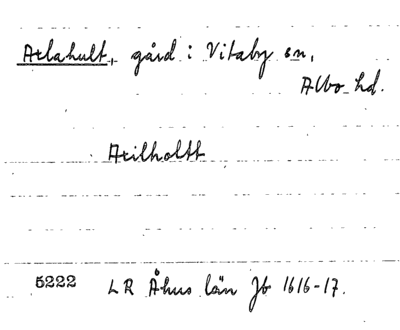 Atlahult, gård i Vitaby sn,
Albo hd.
Atilholtt
5222 LR Åhus län Jb 1616-17.